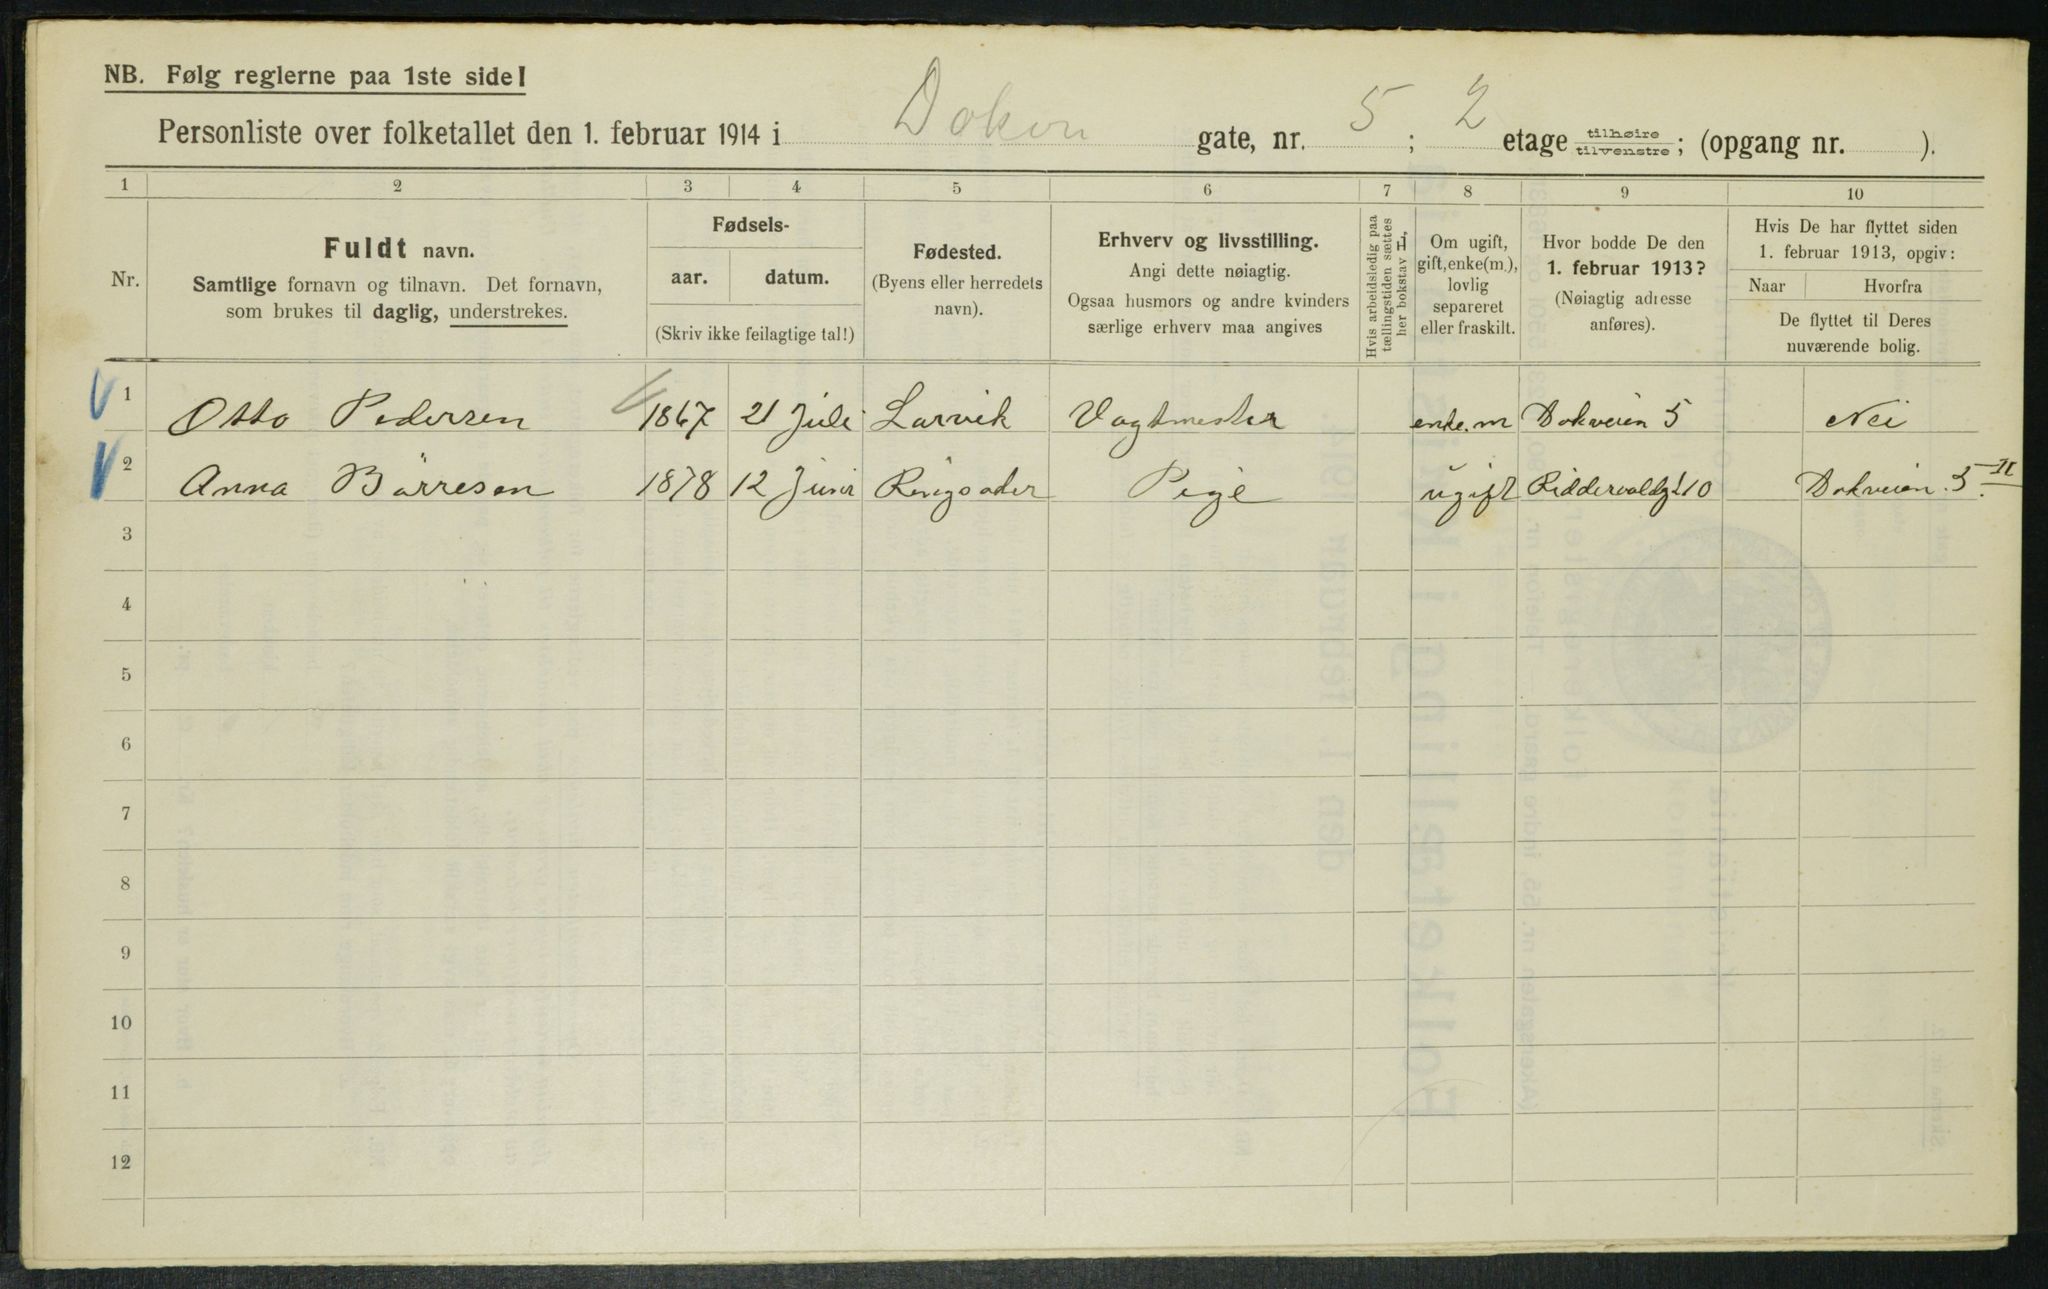 NB. Følg reglerne paa 1ste side!
Personliste over folketallet den 1. februar 1914 i Dokvn gate, nr. 5; 2 etage tilhøire/tilvenstre; (opgang nr. ).
1 2 3 4 5 6 7 8 9 10
Nr.
Fuldt navn.
Samtlige fornavn og tilnavn. Det fornavn,
som brukes til daglig, understrekes.
Fødsels-
aar. datum.
(Skriv ikke feilagtige tal!)
Fødested.
(Byens eller herredets
navn).
Erhverv og livsstilling.
Angi dette nøiagtig.
Ogsaa husmors og andre kvinders
særlige erhverv maa angives
Hvis arbeidsledig paa
tællingstiden sættes
her bokstav L,
Om ugift,
gift, enke(m.),
lovlig
separeret
eller fraskilt.
Hvor bodde De den
1. februar 1913?
(Nøiagtig adresse
anføres).
Hvis De har flyttet siden
1. februar 1913, opgiv:
Naar Hvorfra
De flyttet til Deres
nuværende bolig.
1 Otto Pedersen 1867 21 Juli Larvik Vagtmester enke.m Dokveien 5 Nei
2 Anna Börresen 1878 12 Juni Ringsaker Pige ugift Riddervoldgt 10 Dokveien 5 II
3
4
5
6
7
8
9
10
11
12